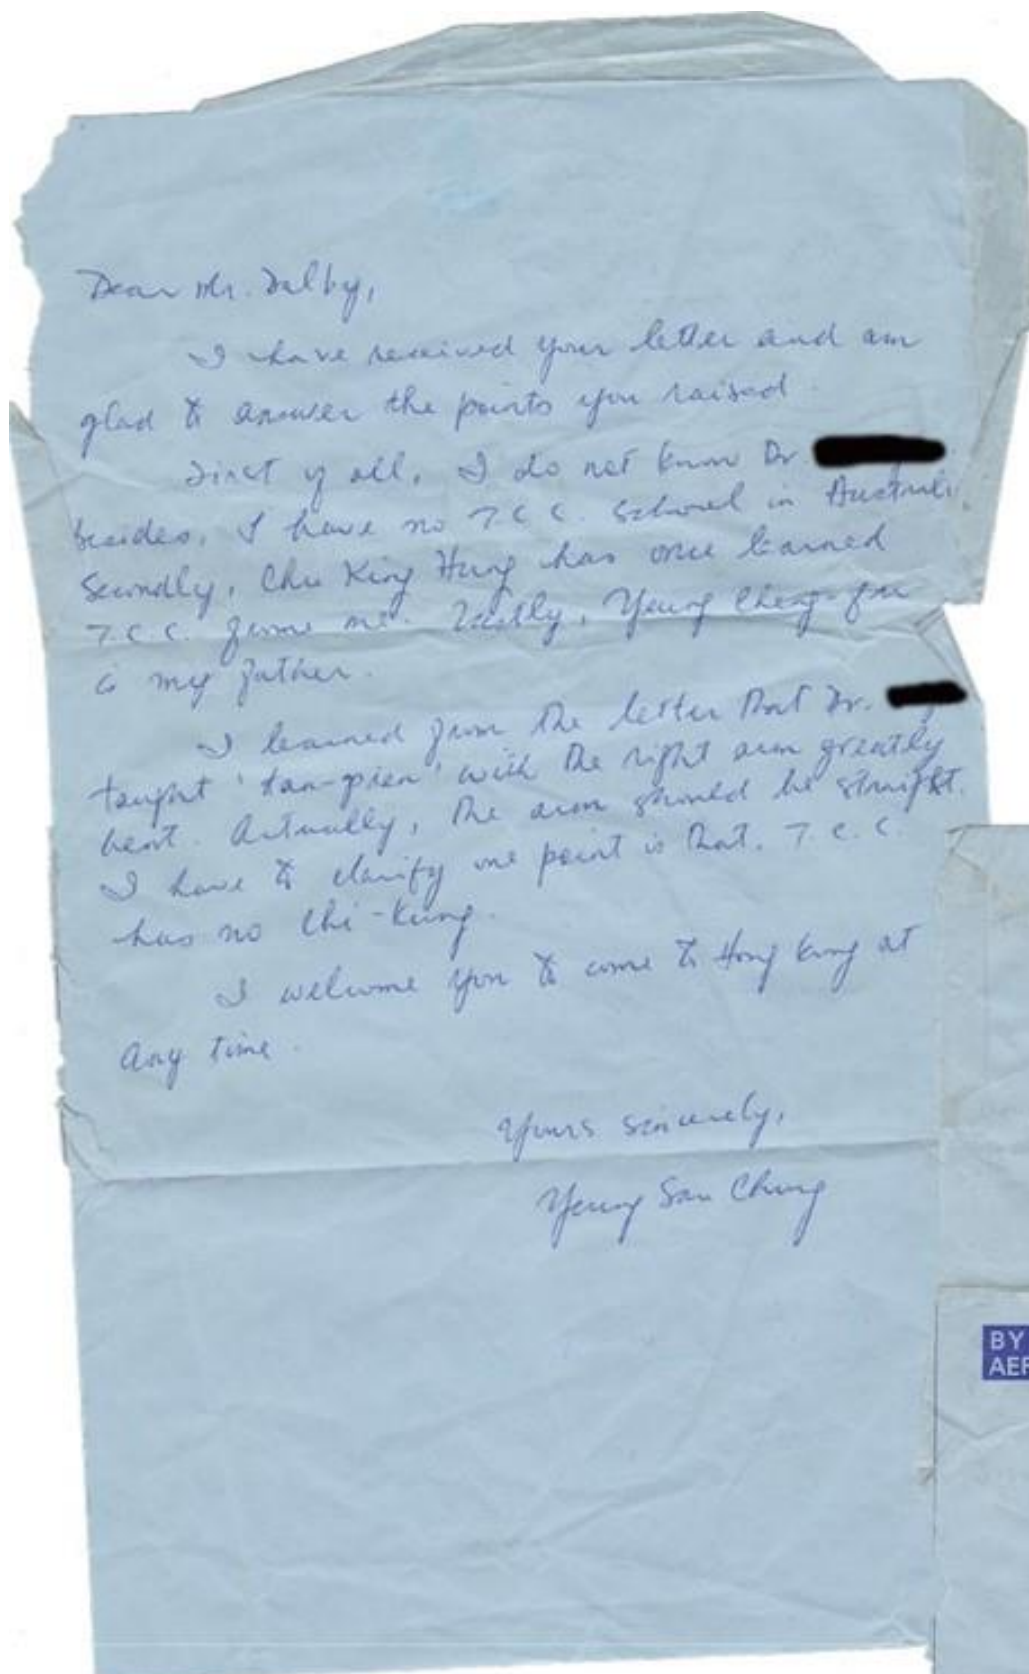 Dear Mr. Dalby,
I have received your letter and am
glad to answer the points you raised.
First of all, I do not know Dr.
besides, I have no T.C.C. School in Australi
Secondly, Chu King Hung has once learned
T.C.C. from me. Lastly, Yeung Cheng-fu
is my father.
I learned from the letter that Dr.
taught 'tan-pien' with the right arm greatly
bent. Actually, the arm should be straight.
I have to clarify one point is that. T.C.C.
has no Chi-Kung.
I welcome you to come to Hong Kong at
any time.
Yours sincerely,
Yeung Sau Chung
BY
AER